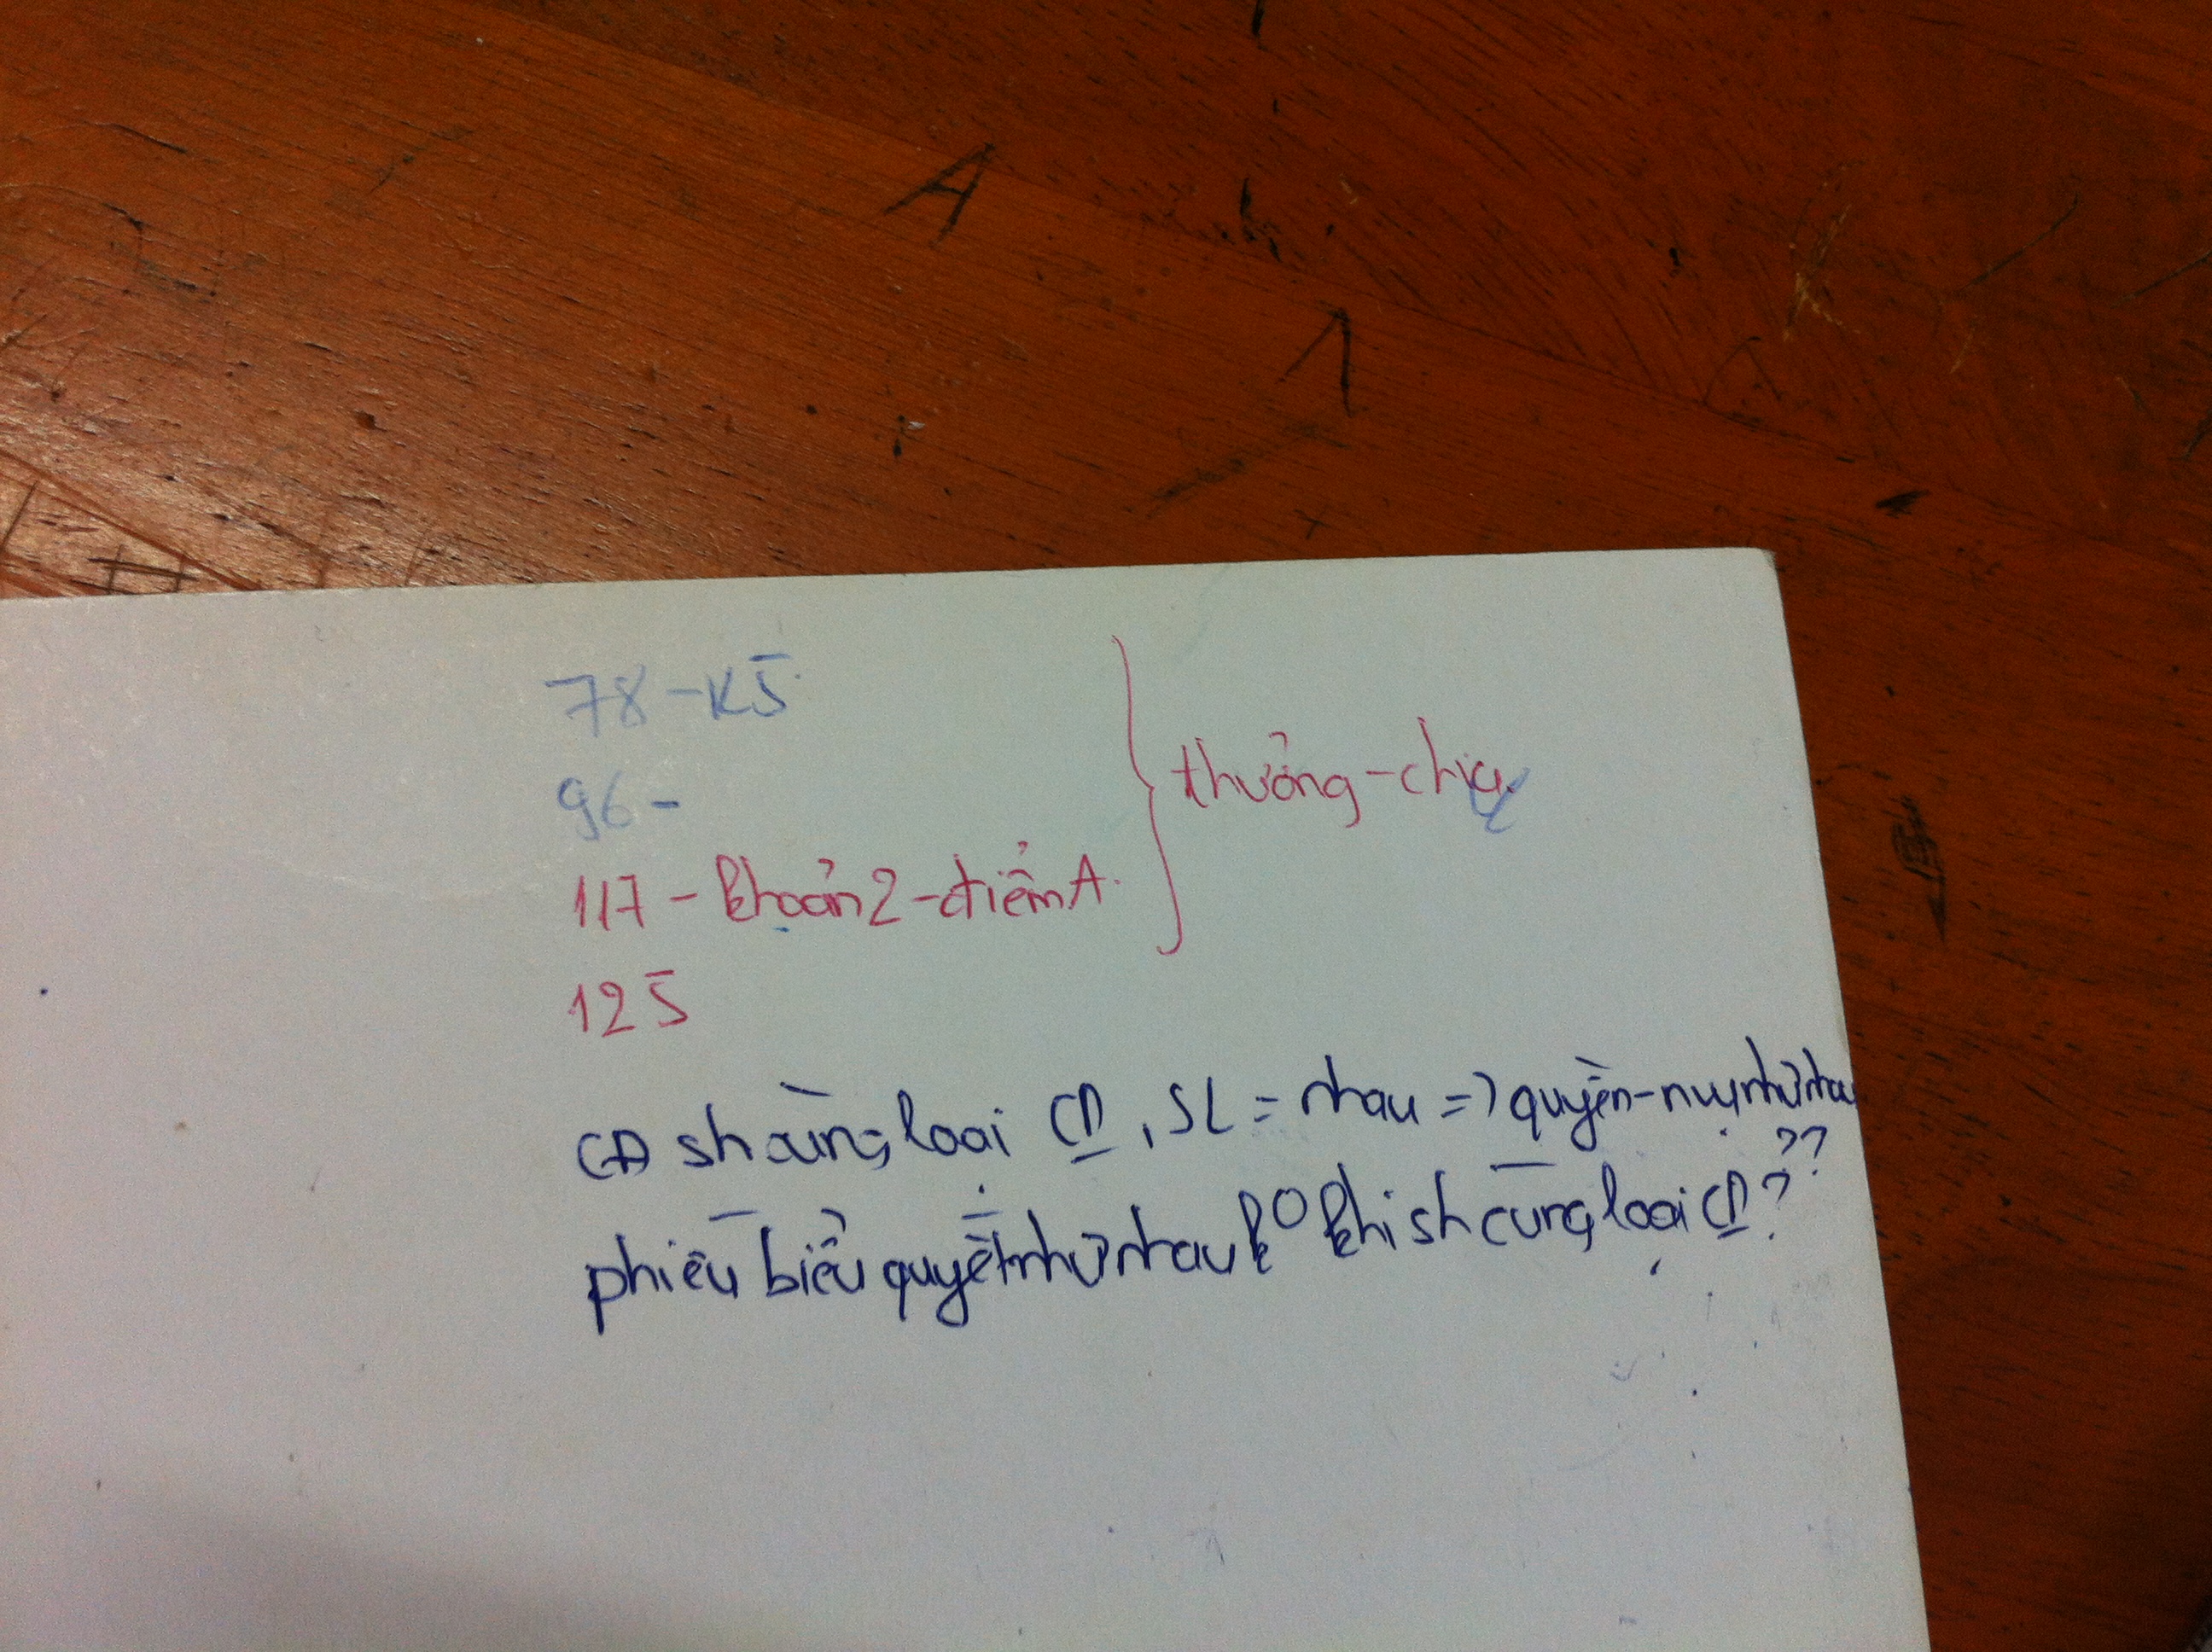 78 - K5.
96 -
117 - khoản 2 - điểm A.
thưởng - chịu
125
CĐ sh cùng loại CP, SL = nhau => quyền - nvụ như nhau ??
phiếu biểu quyết như nhau k° khi sh cùng loại CP?